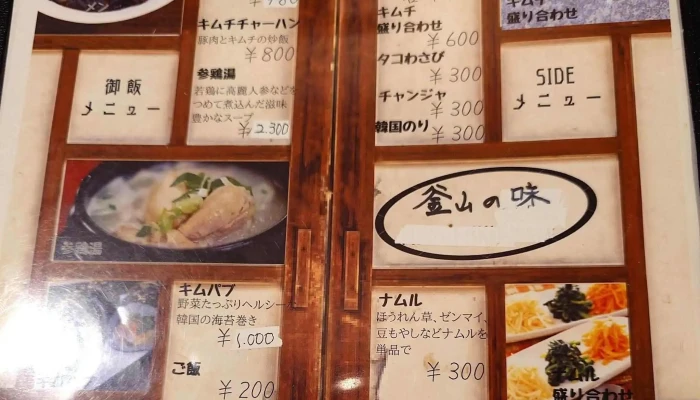 メン
キムチチャーハン
豚肉とキムチの炒飯
¥800
御飯
メニュー
参鶏湯
若鶏に高麗人参などを
つめて煮込んだ滋味
豊かなスープ
¥2.300
参鶏湯
キムパブ
野菜たっぷりヘルシー
韓国の海苔巻き
¥1.000
ご飯
¥200
キムチ
盛り合わせ
¥600
タコわさび
¥300
チャンジャ
¥300
韓国のり
¥300
キムチ
盛り合わせ
SIDE
メニュー
釜山の味
ナムル
ほうれん草、ゼンマイ、
豆もやしなどナムルを
単品で
¥300
ナムル
盛り合わせ